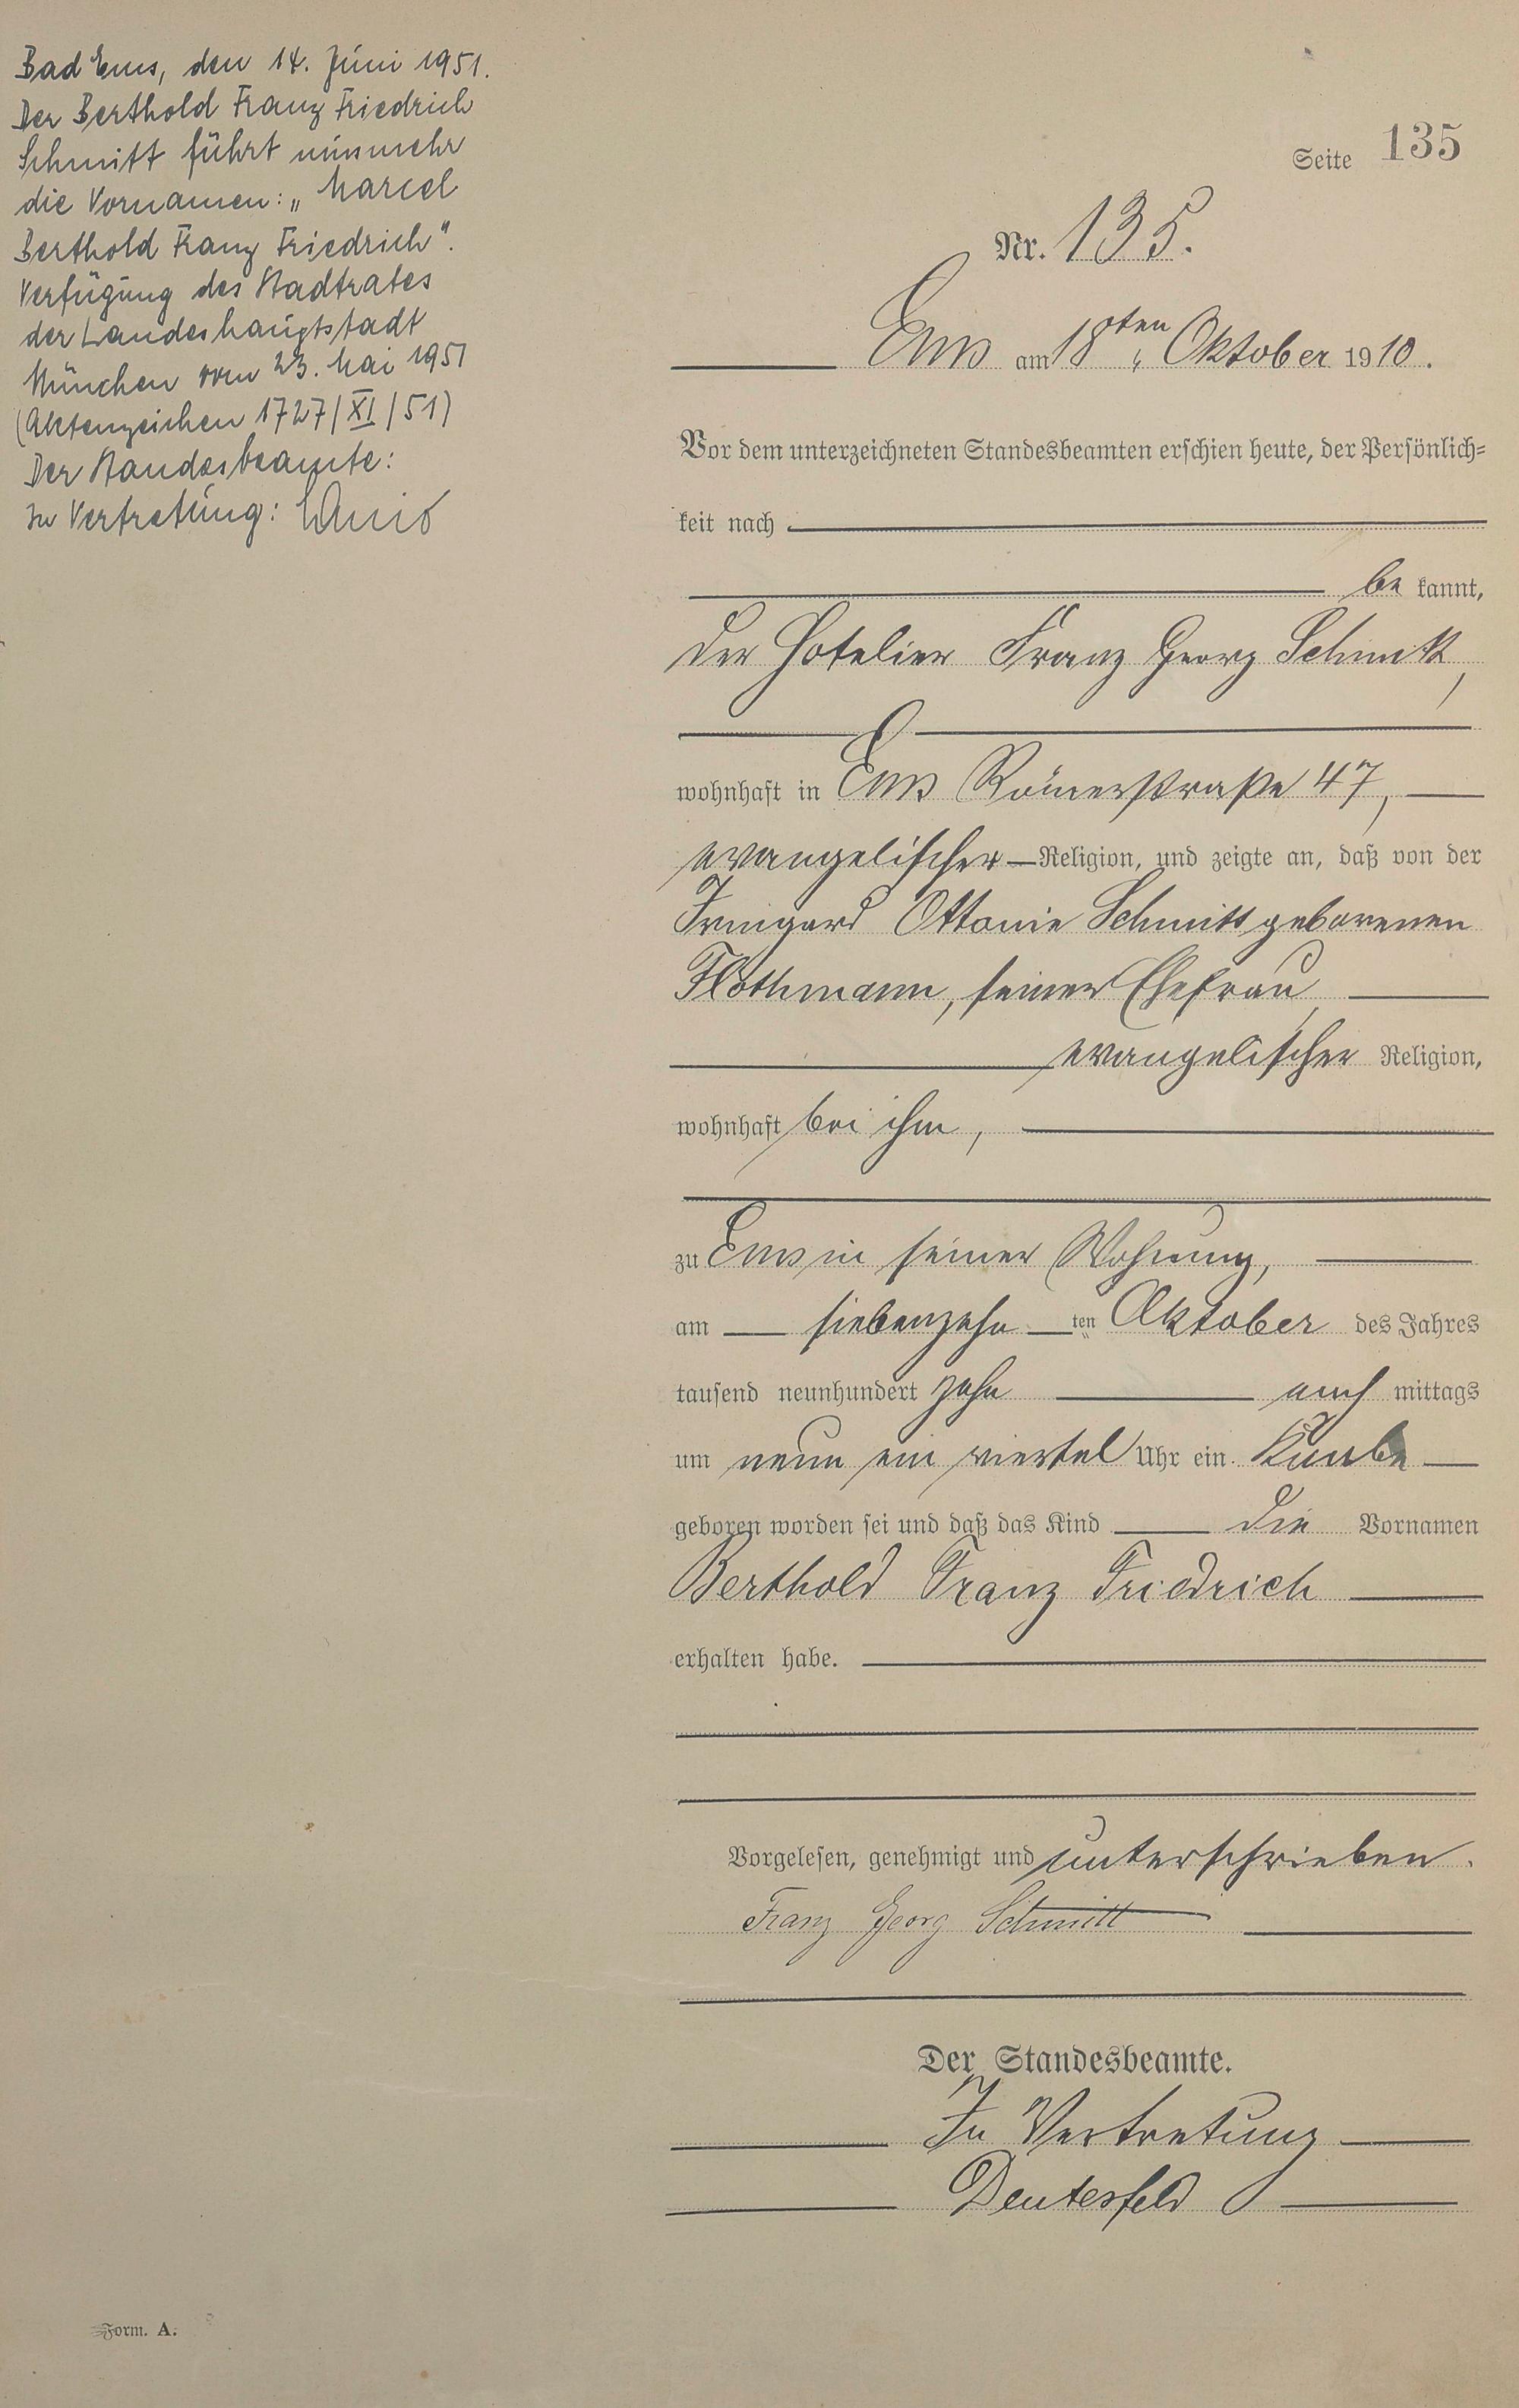 Bad Ems, den 14. Juni 1951.
Der Berthold Franz Friedrich
Schmitt führt nunmehr
die Vornamen: „Marcel
Berthold Franz Friedrich".
Verfügung des Stadtrates
der Landeshauptstadt
München vom 23. Mai 1951
(Aktenzeichen 1727/XI/51)
Der Standesbeamte:
In Vertretung:
Seite 135
Nr. 135.
Ems am 18ten Oktober 1910.
Vor dem unterzeichneten Standesbeamten erschien heute, der Persönlich=
keit nach
be kannt,
der Hotelier Franz Georg Schmitt,
wohnhaft in Ems Römerstraße 47,
evangelischer Religion, und zeigte an, daß von der
Irmgard Ottonie Schmitt geborenen
Flothmann, seiner Ehefrau,
evangelischer Religion,
wohnhaft bei ihm,
zu Ems in seiner Wohnung,
am siebenzehn ten Oktober des Jahres
tausend neunhundert zehn mittags
um neun ein viertel Uhr ein Knabe
geboren worden sei und daß das Kind die Vornamen
Berthold Franz Friedrich
erhalten habe.
Vorgelesen, genehmigt und unterschrieben.
Franz Georg Schmitt
Der Standesbeamte.
In Vertretung
Deutesfeld
Form. A.